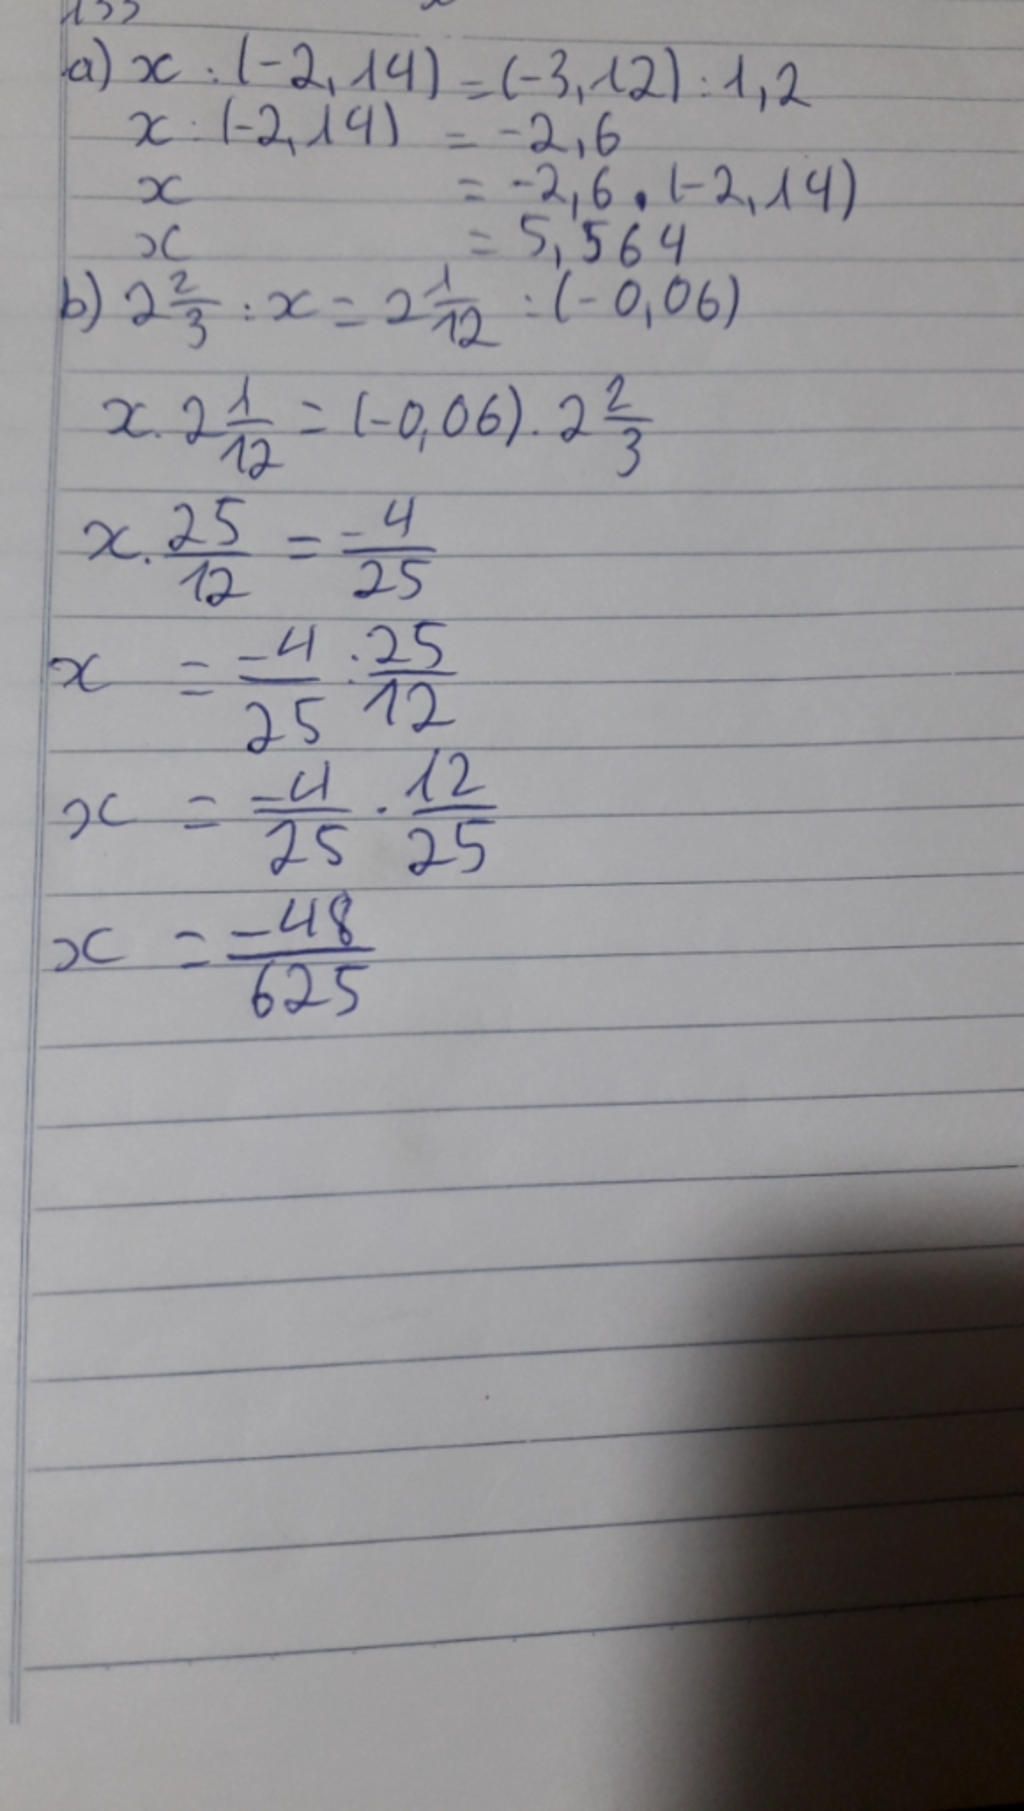 a) x : (-2,14) = (-3,12) : 1,2
x : (-2,14) = -2,6
x = -2,6 . (-2,14)
x = 5,564
b) 2 2/3 : x = 2 1/12 : (-0,06)
x . 2 1/12 = (-0,06) . 2 2/3
x . 25/12 = -4/25
x = -4/25 : 25/12
x = -4/25 . 12/25
x = -48/625